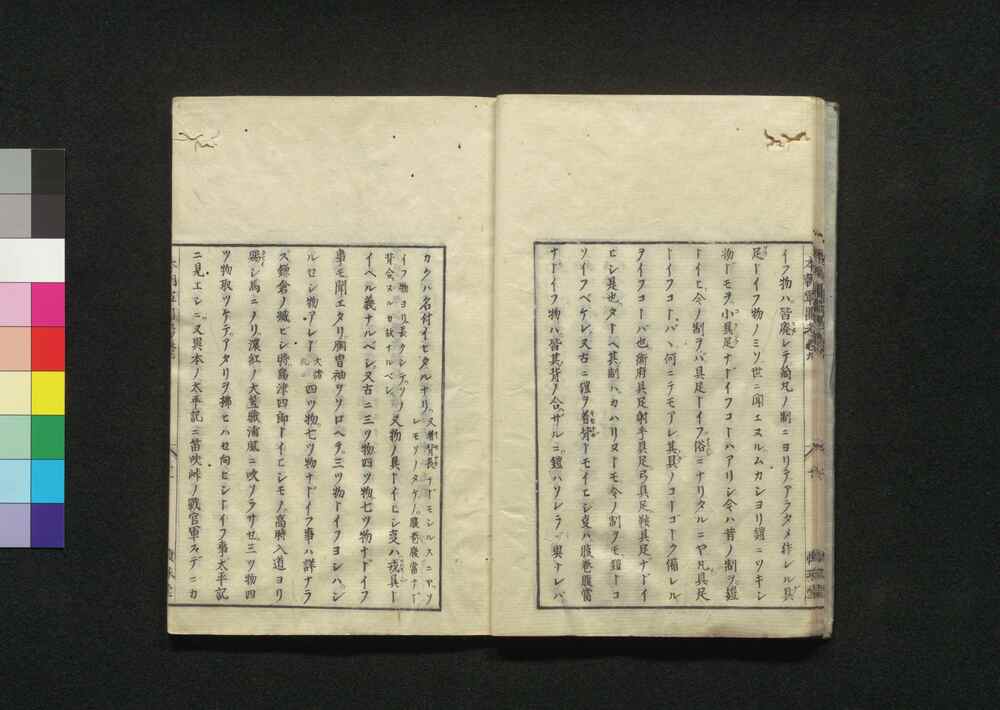 イフ物ハ皆廃レテ綺凡ノ制ニヨリテアラタメ作レル具
足トイフ物ノミソ世ニ聞エヌルムカシヨリ鎧ニツキシ
物ドモヲ小具足ナドイフコトハアリシ今ハ昔ノ制ヲ鎧
トイヒ今ノ制ヲバ具足トイフ俗ニナリタルニヤ凡具足
トイフコトバハ何ニテモアレ其具ノコトゴトク備レル
ヲイフコトバ也衛府具足射手具足弓具足鞍具足ナドイ
ヒシ是也タトヘ其制ハカハリヌトモ今ノ制ヲモ鎧トコ
ソイフベケレ又古ニ鎧ヲ着背トモイヒシ事ハ腹巻腹當
ナドイフ物ハ皆其背ノ合ザルニ鎧ハソレラニ異ナレバ
カクハ名付イヒタルナリ又着背長ナドモシルスニヤソ
レモソノタケノ腹巻腹當ナド
イフ物ヨリ長クシテソノ
背合ヌル也故ナルベシ
又物ノ具トイヒシ事ハ戎具ト
イヘル義ナルベシ又古ニ三ツ物四ツ物七ツ物ナドイフ
事モ聞エタリ胴冑袖ヲソロヘテ三ツ物トイフヨシハシ
ルセシ物アレド
四ツ物七ツ物ナドイフ事ハ詳ナラ
ズ鎌倉ノ滅ビシ時島津四郎トイヒシモノ高時入道ヨリ
賜シ馬ニノリ濃紅ノ大笠験浦風ニ吹ソラサセ三ツ物四
ツ物取ツケテアタリヲ拂ヒハセ向ヒシトイフ事太平記
ニ見エシニ又異本ノ太平記ニ笛吹峠ノ戰官軍スデニカ